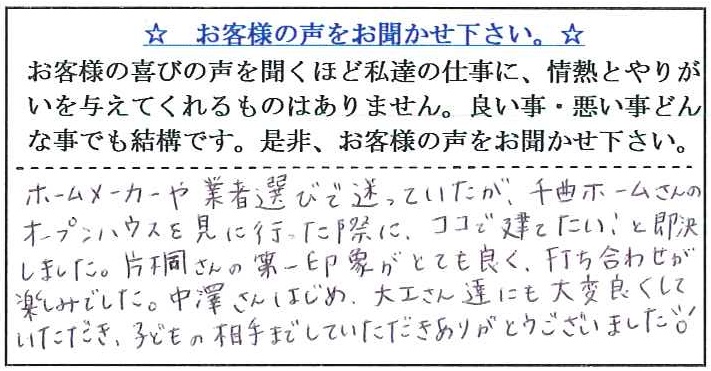 ☆ お客様の声をお聞かせ下さい。☆
お客様の喜びの声を聞くほど私達の仕事に、情熱とやりが
いを与えてくれるものはありません。良い事・悪い事どん
な事でも結構です。是非、お客様の声をお聞かせ下さい。
ホームメーカーや業者選びで迷っていたが、千曲ホームさんの
オープンハウスを見に行った際に、ココで建てたい!と即決
しました。片桐さんの第一印象がとても良く、打ち合わせが
楽しみでした。中澤さんはじめ、大工さん達にも大変良くして
いただき、子どもの相手までしていただきありがとうございました